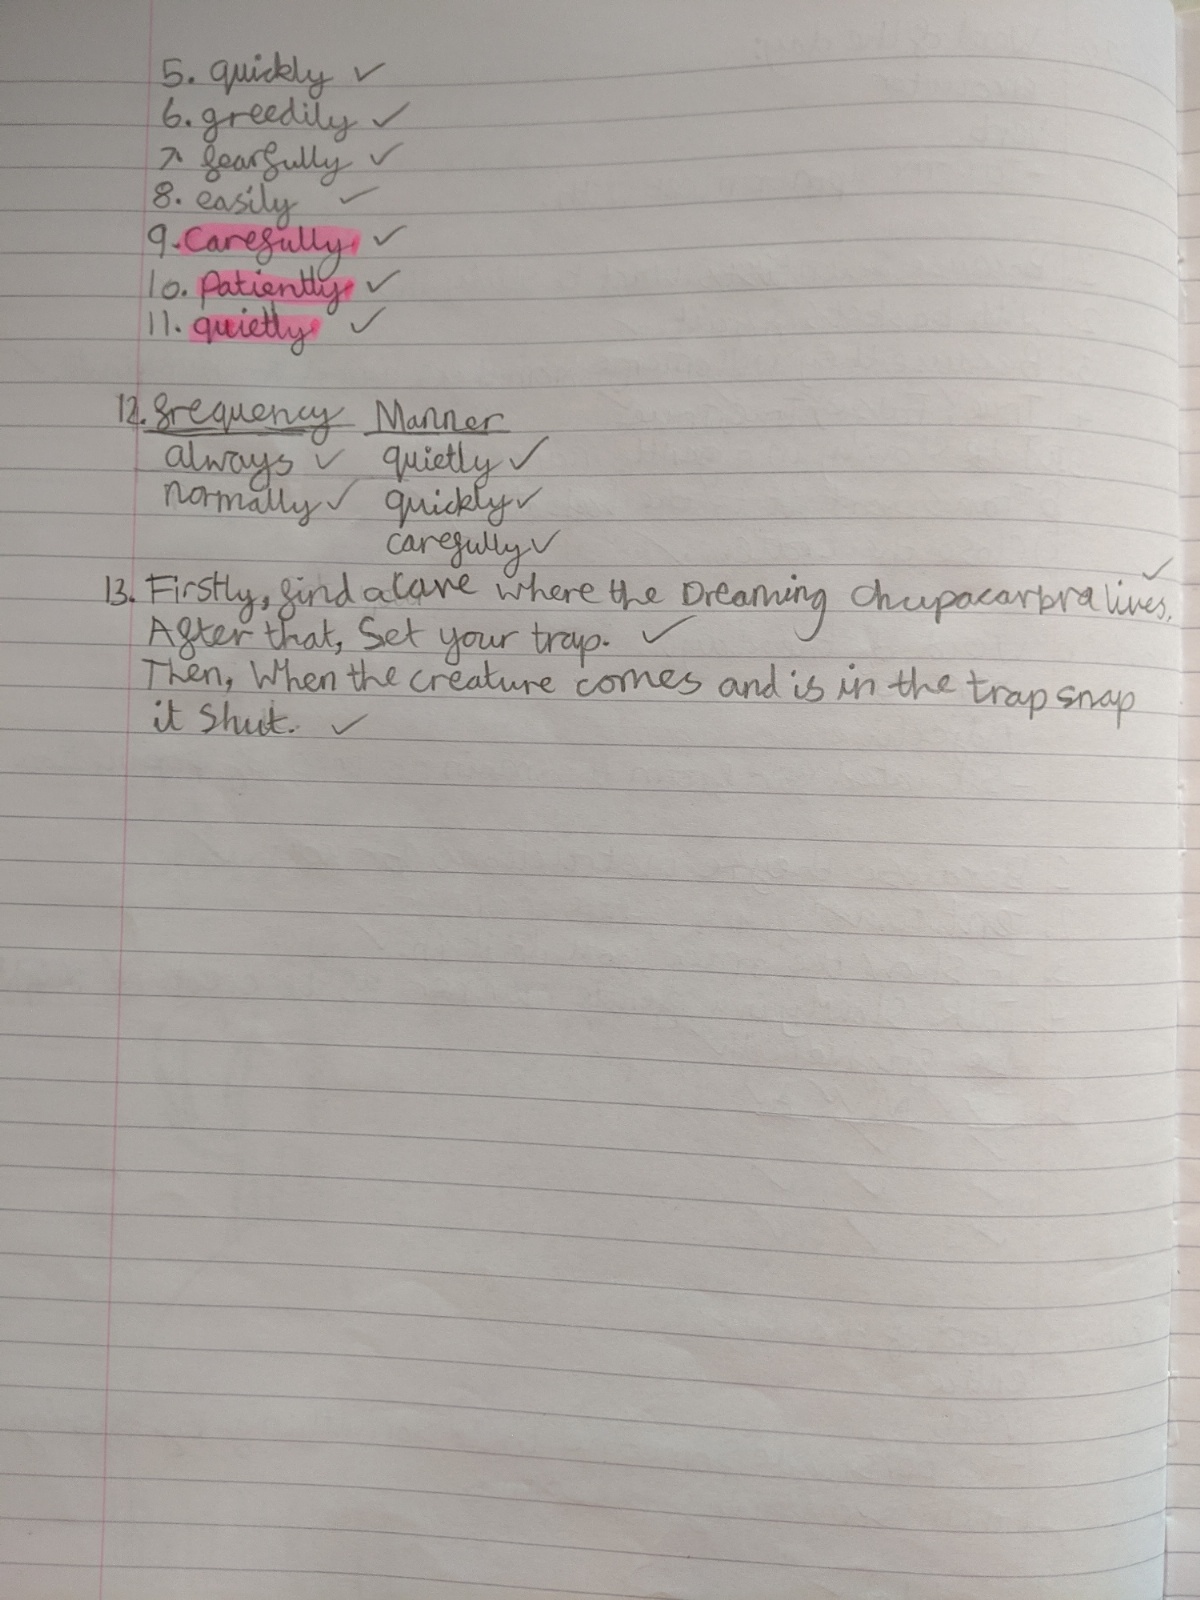 5. quickly ✓
6. greedily ✓
7. fearfully ✓
8. easily ✓
9. Carefully ✓
10. Patiently ✓
11. quietly ✓
12. frequency Manner
always ✓ quietly ✓
normally ✓ quickly ✓
carefully ✓
13. Firstly, find a cave where the Dreaming Chupacarbra lives. ✓
After that, Set your trap. ✓
Then, When the creature comes and is in the trap snap
it Shut. ✓